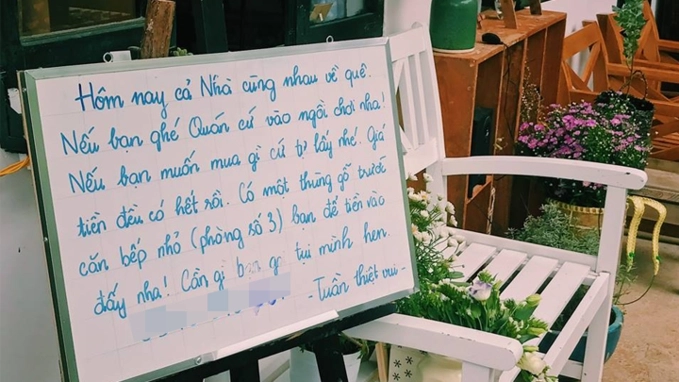 Hôm nay cả Nhà cùng nhau về quê.
Nếu bạn ghé Quán cứ vào ngồi chơi nha!
Nếu bạn muốn mua gì cứ tự lấy nhé! Giá
tiền đều có hết rồi. Có một thùng gỗ trước
căn bếp nhỏ (phòng số 3) bạn để tiền vào
đấy nha! Cần gì bạn gọi tụi mình hen.
- Tuần thiệt vui -